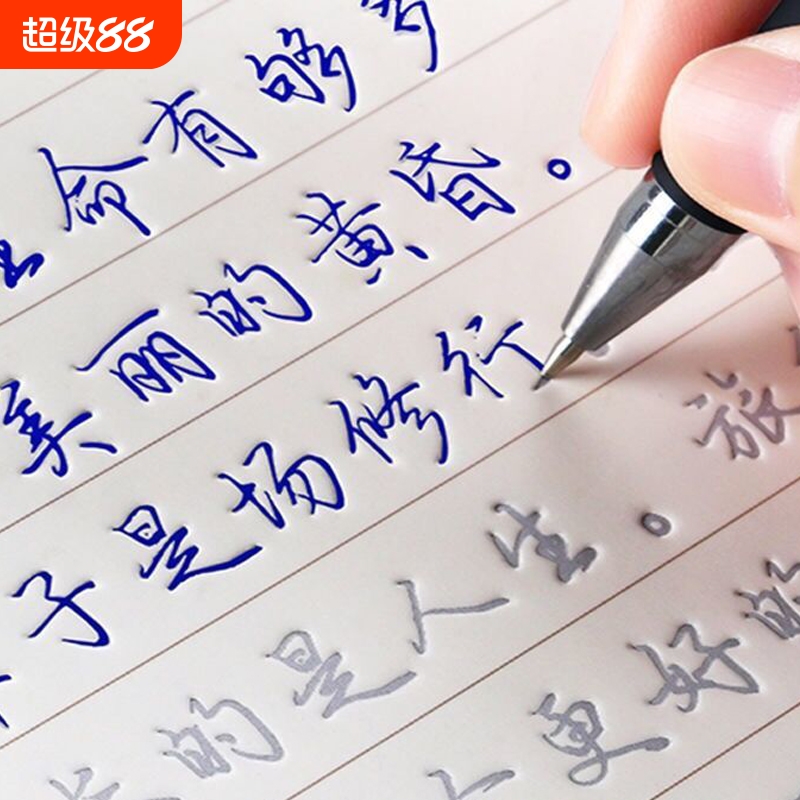 超级88
命有够多
美丽的黄昏。
子是场修行
的是人生。旅
更好的